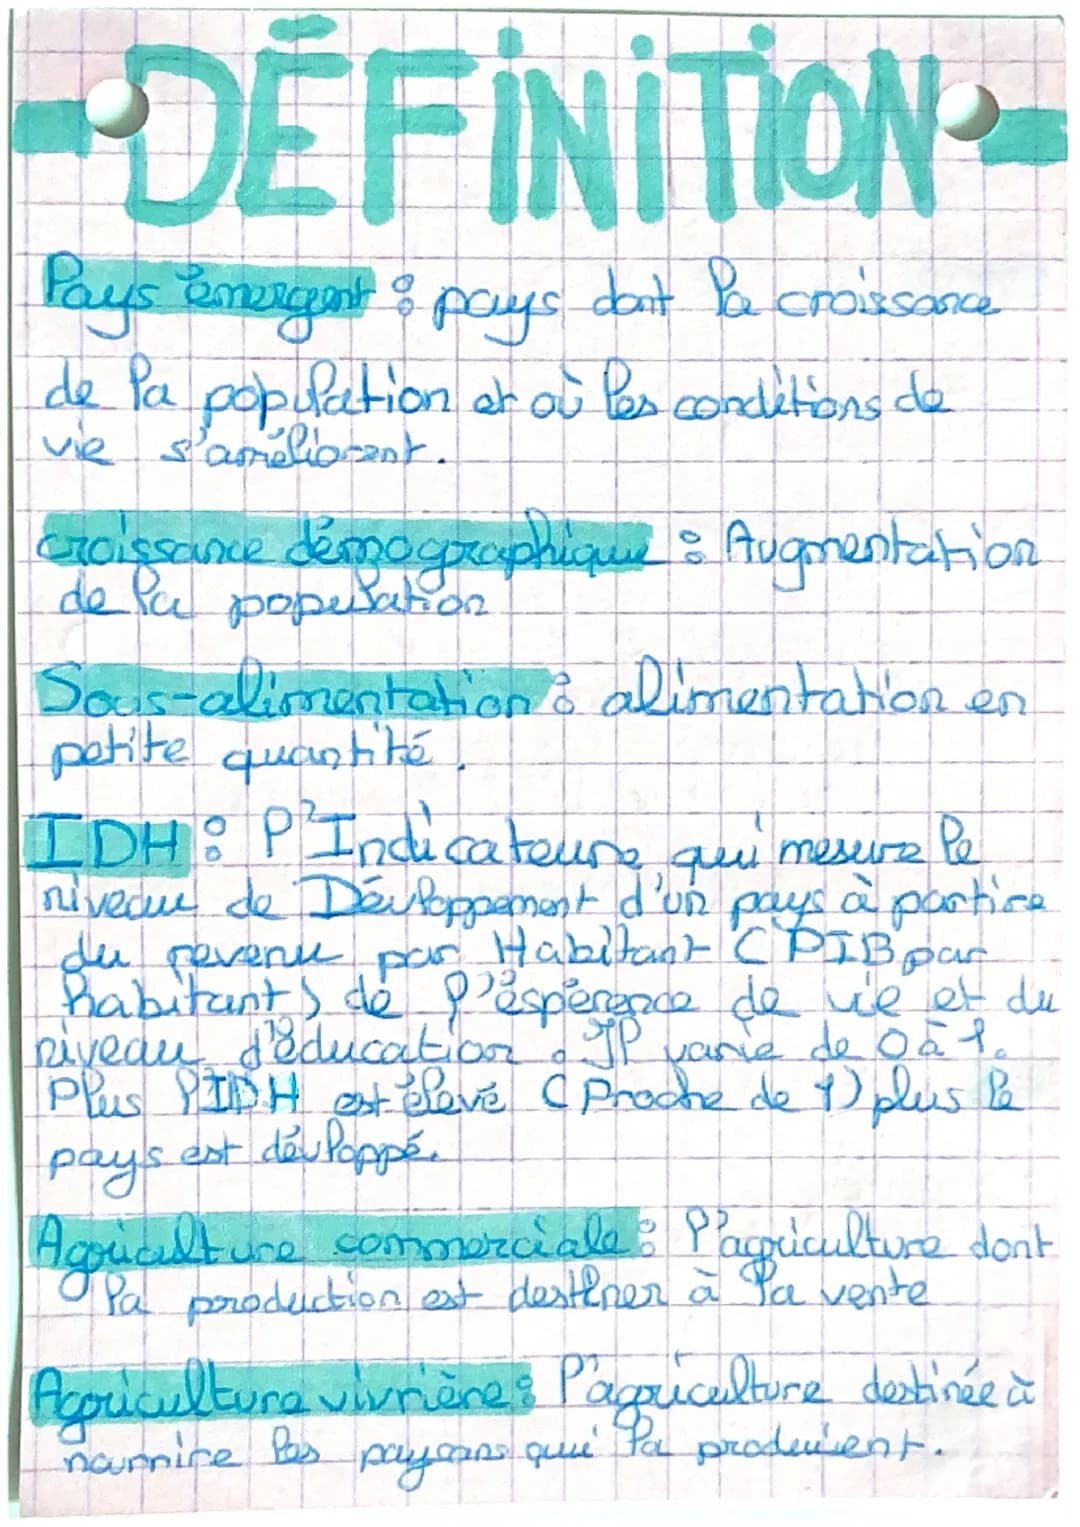 DÉFINITION
Pays émergent : pays dont la croissance
de la population et où les conditions de
vie s'améliorent.
croissance démographique : Augmentation
de la population
Sous-alimentation : alimentation en
petite quantité.
IDH : l'Indicateure qui mesure le
niveau de Dévloppement d'un pays à partire
du revenu par Habitant (PIB par
habitant) de l'espérence de vie et du
niveau d'éducation. Il varie de 0 à 1.
Plus l'IDH est élevé (Proche de 1) plus le
pays est dévloppé.
Agriculture commerciale : l'agriculture dont
la production est destiner à la vente
Agriculture vivrière : l'agriculture destinée à
nourrire les paysans qui la produisent.